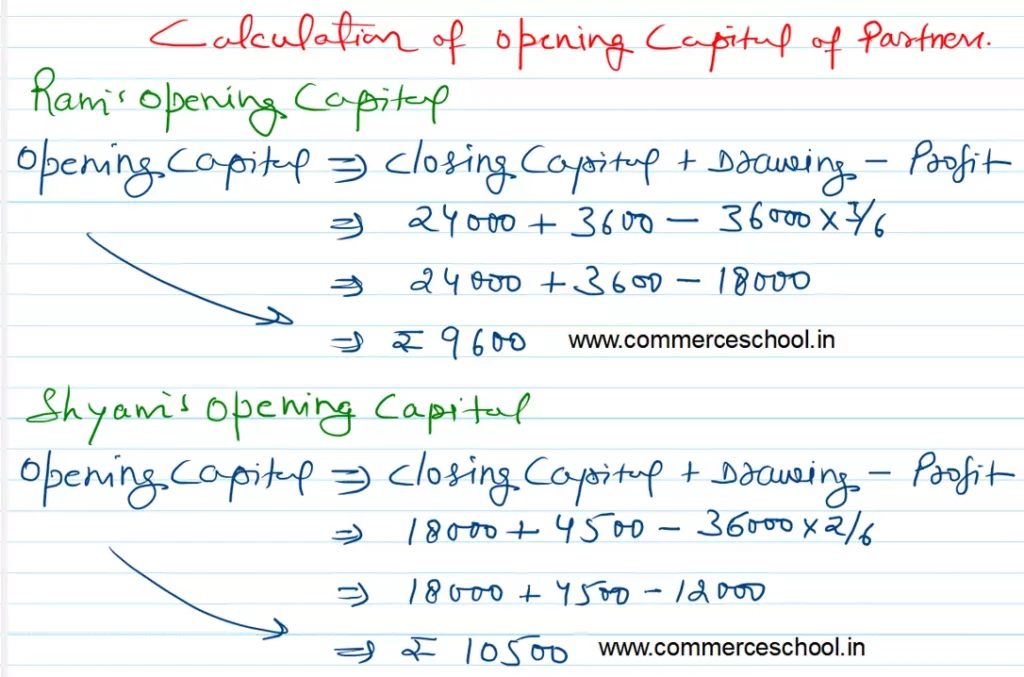 Calculation of opening Capital of Partners.
Ram's Opening Capital
Opening Capital ⇒ Closing Capital + Drawing - Profit
⇒ 24000 + 3600 - 36000 × 3/6
⇒ 24000 + 3600 - 18000
⇒ ₹ 9600 www.commerceschool.in
Shyam's Opening Capital
Opening Capital ⇒ Closing Capital + Drawing - Profit
⇒ 18000 + 4500 - 36000 × 2/6
⇒ 18000 + 4500 - 12000
⇒ ₹ 10500 www.commerceschool.in